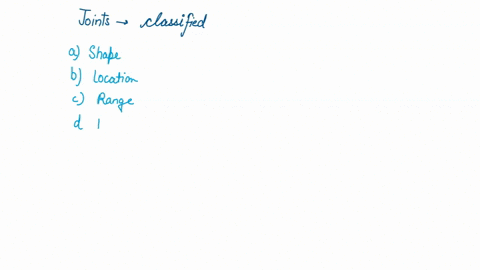 Joints → classified
a) Shape
b) Location
c) Range
d